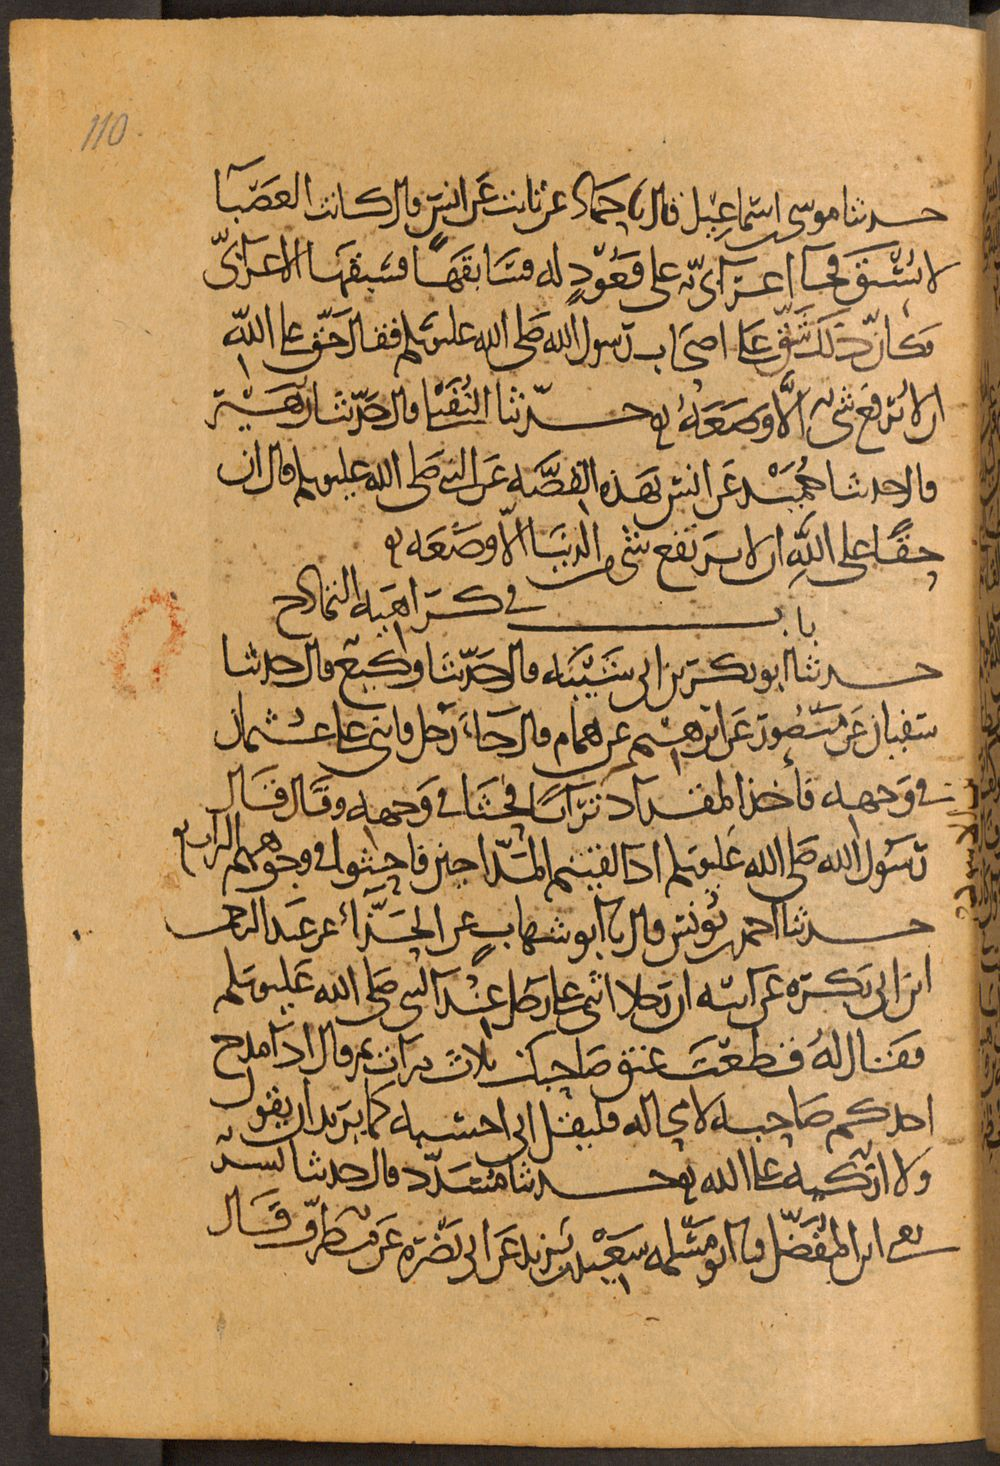 110
حدثنا موسى بن اسماعيل قال نا حماد عن ثابت عن انس قال كانت العضبا
لا تسبق فجا اعرابي على قعود له فسابقها فسبقها الاعرابي
فكان ذلك شق على اصحاب رسول الله صلى الله عليه وسلم فقال حق على الله
ان لا يرتفع شيء الا وضعه حدثنا النفيلي قال حدثنا زهير
قال حدثنا حميد عن انس بهذه القصة عن النبي صلى الله عليه وسلم قال ان
حقا على الله ان لا يرتفع شي من الدنيا الا وضعه
باب في كراهية التمادح
حدثنا ابو بكر بن ابي شيبة قال حدثنا وكيع قال حدثنا
سفيان عن منصور عن ابرهيم عن همام قال جاء رجل فاثنى على عثمان
في وجهه فأخذ المقداد ترابا فحثا في وجهه وقال قال
رسول الله صلى الله عليه وسلم اذا لقيتم المداحين فاحثوا في وجوههم التراب
حدثنا احمد بن يونس قال نا ابو شهاب عن خالد الحذاء عن عبد الرحمن
ابن ابي بكرة عن ابيه ان رجلا اثنى على رجل عند النبي صلى الله عليه وسلم
فقال له قطعت عنق صاحبك ثلاث مرات ثم قال اذا مدح
احدكم صاحبه لا محاله فليقل اني احسبه كما يريد ان يقول
ولا ازكيه على الله حدثنا مسدد قال حدثنا بشر
يعني ابن المفضل نا ابو مسلمه سعيد بن يزيد عن ابي نضرة عن مطرف قال